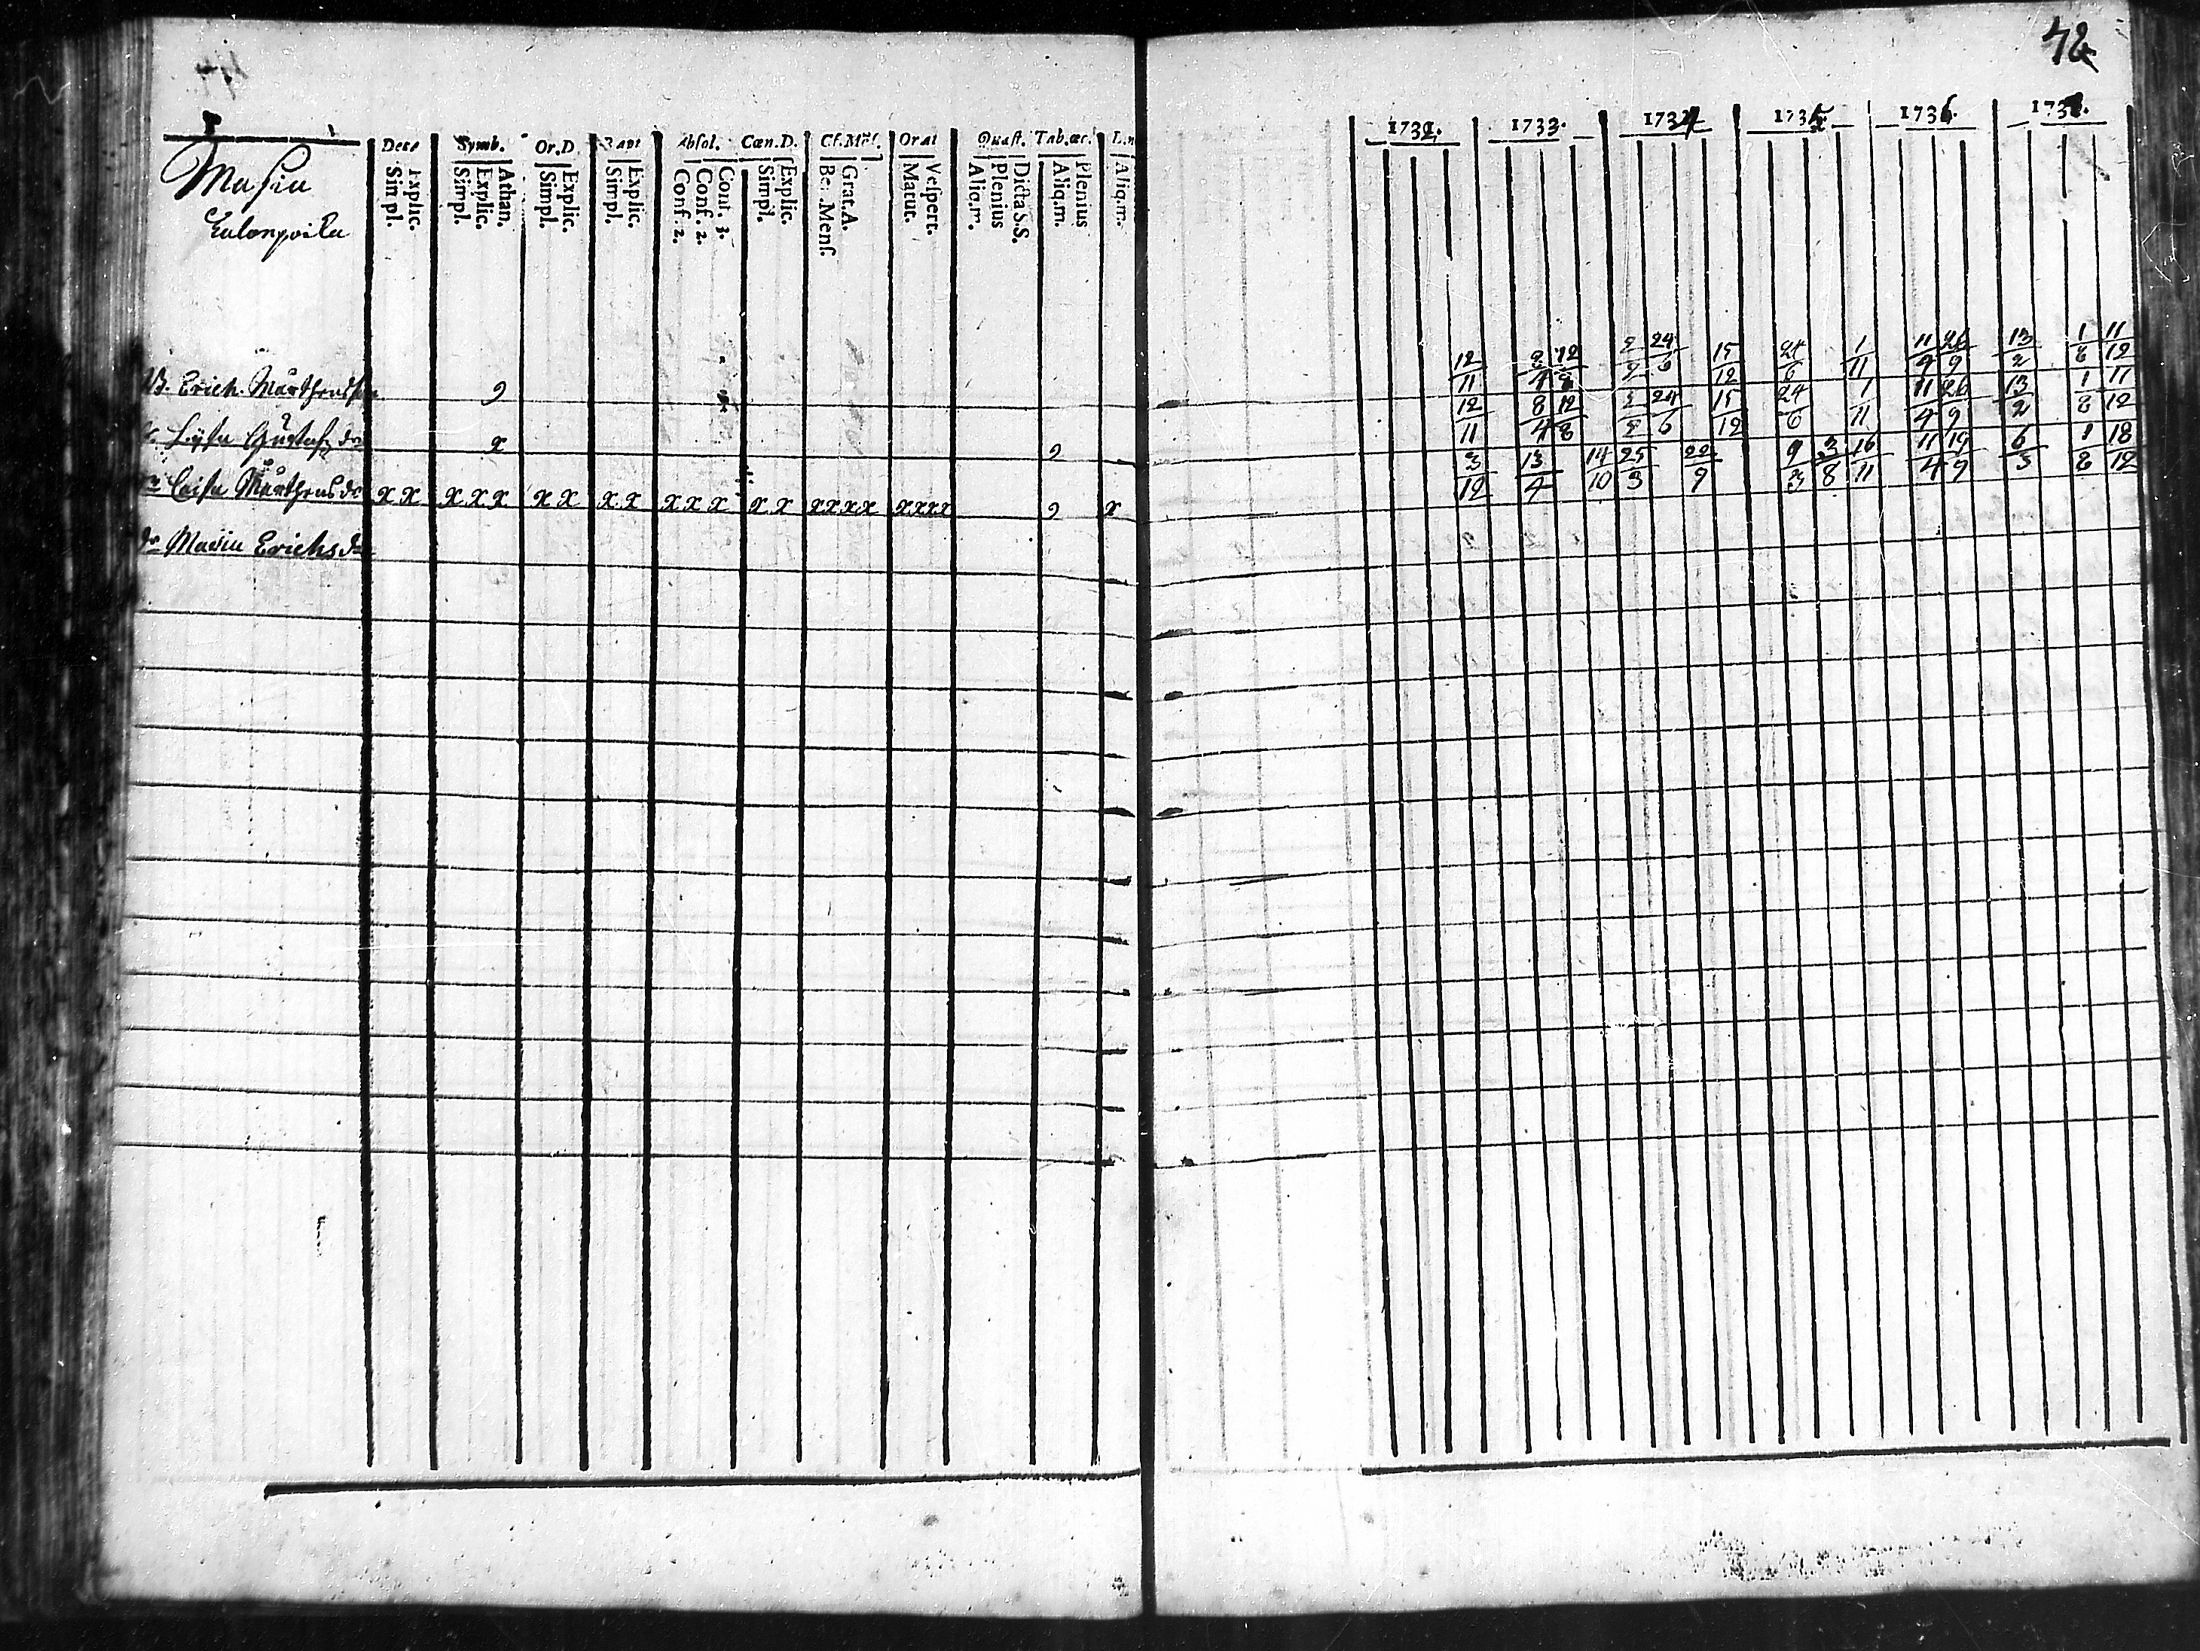 42
Masia
Dece Symb. Or.D Bapt Absol. Cœn.D. Orat Quæst. Tab.œc.
Explic. Simpl. Athan. Explic. Simpl. Explic. Simpl. Explic. Simpl. Conf. 3. Conf. 2. Conf. 2. Explic. Simpl. Grat. A. Be. Menſ. Veſpert. Matut. Dicta S.S. Plenius Aliq.m. Plenius Aliq.m. Aliq.m.
1732. 1733. 1734 1735 1736. 1738.
12/11 8/4 12/8 2/2 24/6 15/12 24/6 1/11 11/4 26/9 13/2 1/8 11/12
Erich Mårthensson 9
12/11 8/4 12/8 2/2 24/6 15/12 24/6 1/11 11/4 26/9 13/2 1/8 11/12
Lijsa Gustafs dr x 9
3/12 13/4 14/10 25/3 22/9 9/3 3/8 16/11 11/4 19/9 6/3 1/8 18/12
Caisa Mårthens dr x x x x x x x x x x x x x x x x x x x x x x 9 x
dr Maria Erichs dr